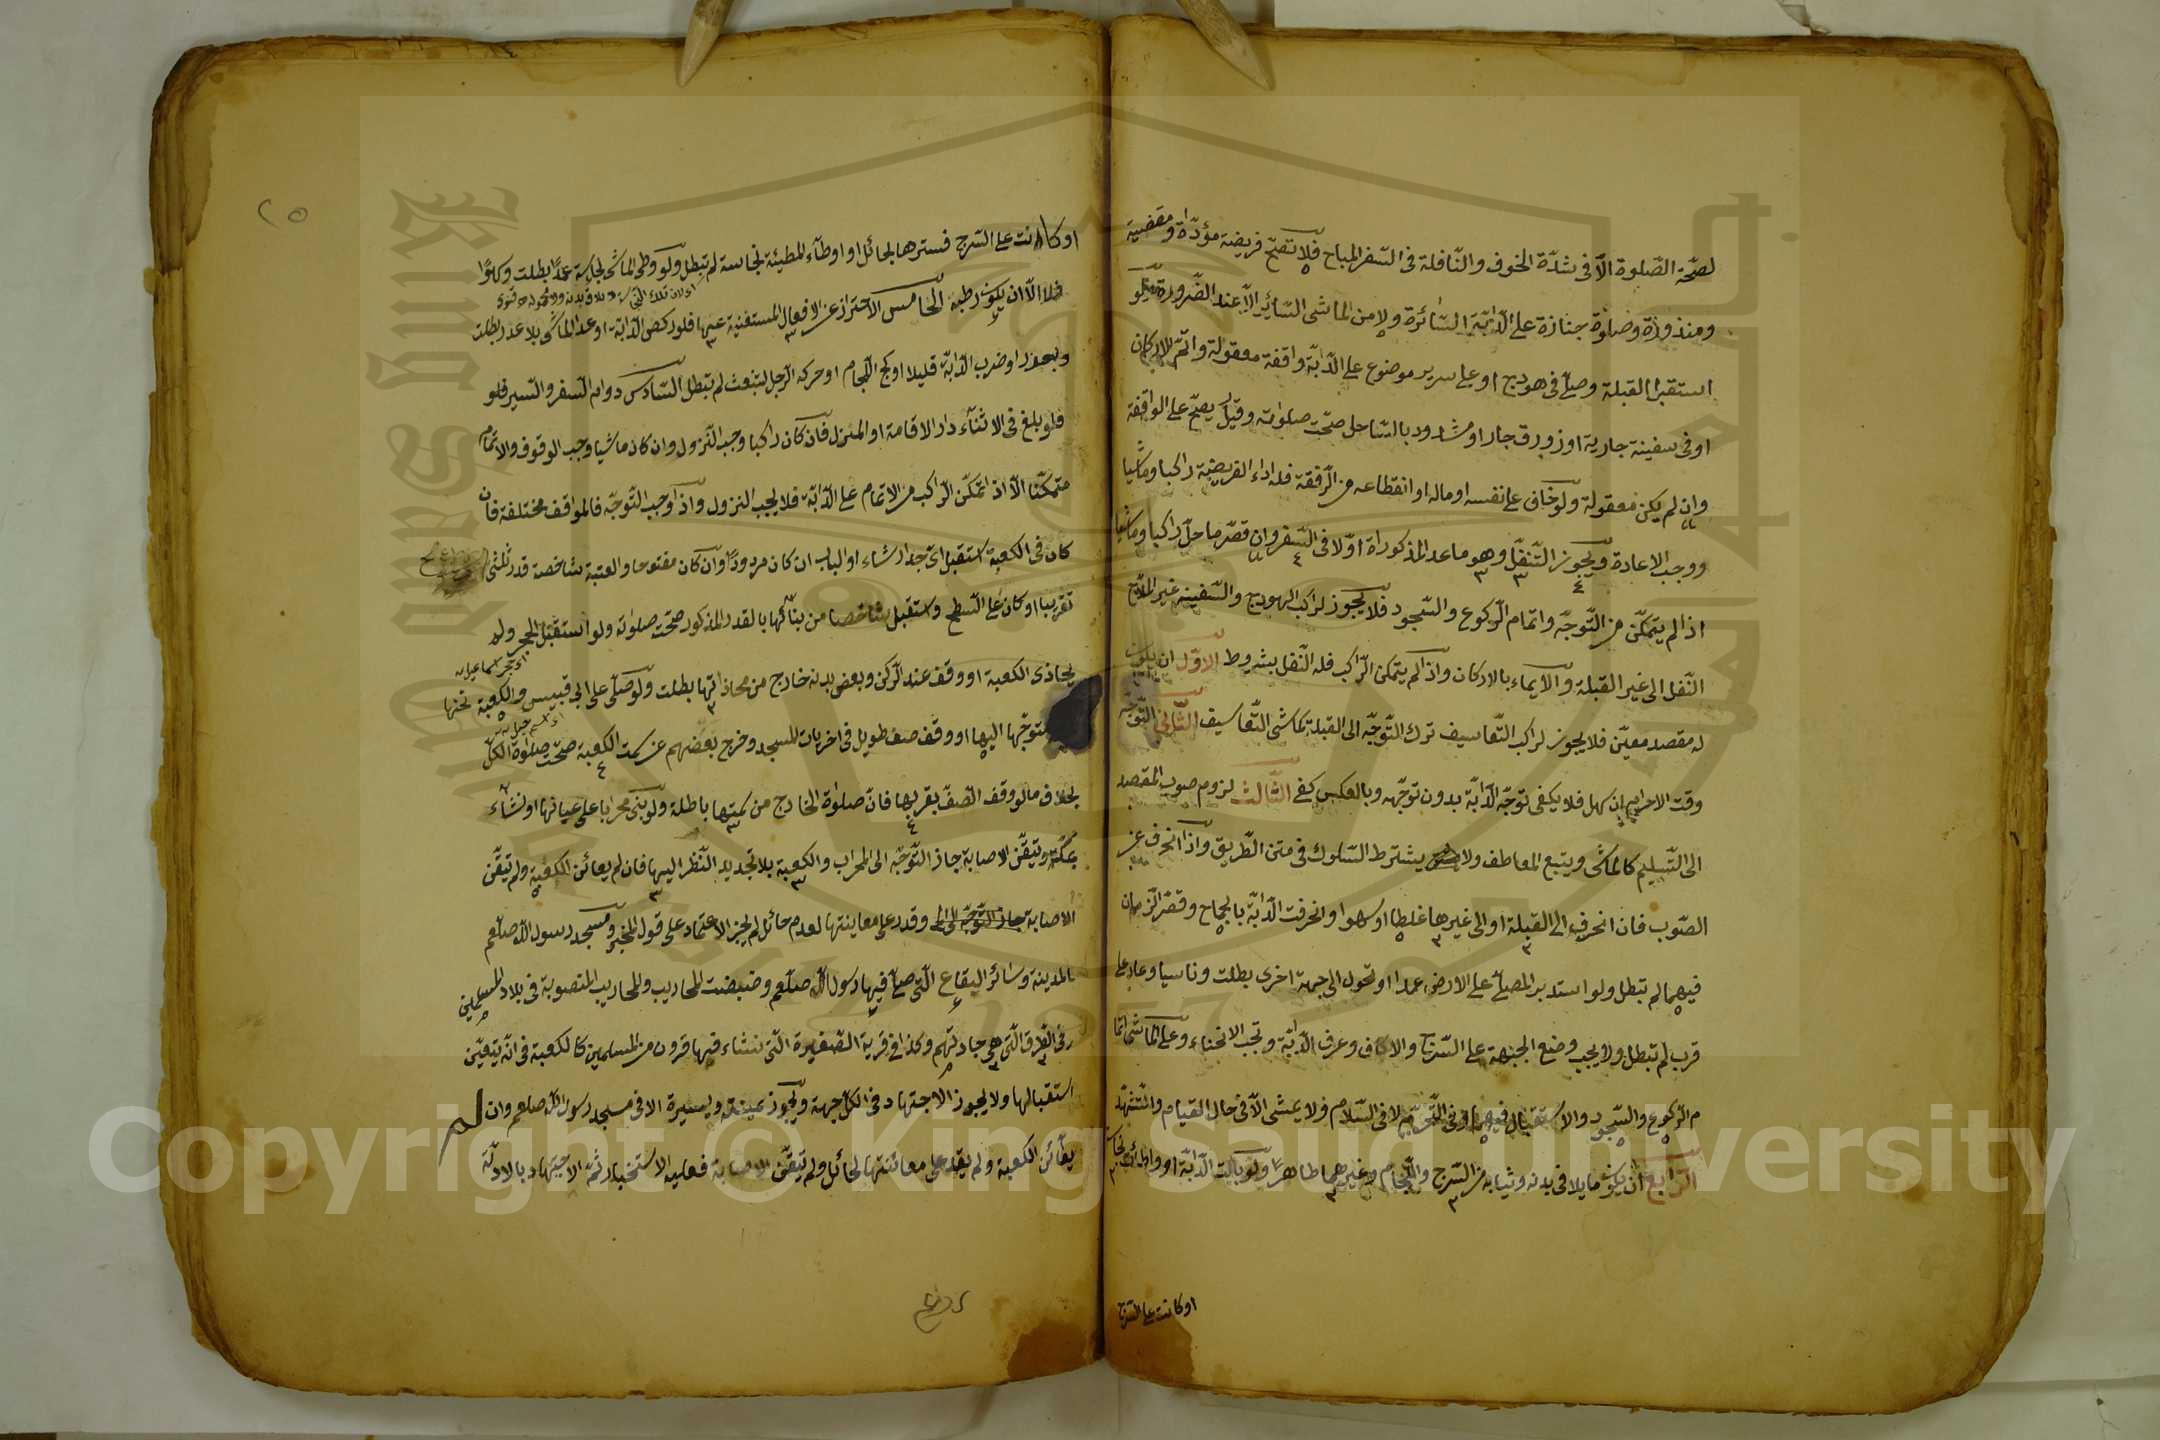 لصحّة الصّلوة الّا فى شدّة الخوف والنّافلة فى السّفر المباح فلا تصحّ فريضة مؤدّاة ومقضية
ومنذورة وصلوة جنازة على الدّابّة السّائرة ولا من الماشى السّائر الّا عند الضّرورة ولو
استقبل القبلة وصلّى فى هودج او على سرير موضوع على الدّابّة واقفة معقولة واتمّ الاركان
اوفى سفينة جارية او زورق جار او مشدود بالسّاحل صحّت صلوته وقيل يصحّ على الواقفة
وان لم يكن معقولة ولو خاف على نفسه او ماله او انقطاعه من الرّفقة فله اداء الفريضة راكبا وماشيا
ووجب الاعادة ويجوز التّنفّل وهو ماعدا المذكوراة اوّلا فى السّفر وان قصر ماحل راكبا وماشيا
اذا لم يتمكّن من التّوجّه واتمام الرّكوع والسّجود فلا يجوز لراكب الهودج والسّفينة غير الملّاح
النّفل الى غير القبلة والايماء بالاركان واذا لم يتمكن الرّاكب فله النّفل بشروط الاوّل ان يكون
له مقصد معيّن فلا يجوز لراكب التّعاسيف ترك التّوجّه الى القبلة كماشى التّعاسيف الثّانى التّوجّه
وقت الاحرام ان سهل فلا يكفى توجّه الدّابّة بدون توجّهه وبالعكس كفى الثّالث لزوم صوب المقصد
الى التّسليم كالماشى ويتبع المعاطف ولا يشترط السّلوك فى متن الطّريق واذا انحرف عن
الصّوب فان انحرف الى القبلة او الى غيرها غلطا او سهوا وانحرفت الدّابّة بالجماح وقصر الزّمان
فيهما لم تبطل ولو استدبر المصلّى على الارض عمدا او تحول الى جهة اخرى بطلت وناسيا وعاد على
قرب لم تبطل ولا يجب وضع الجبهة على السّرج والاكاف وعرف الدّابّة وتجب الانحناء وعلى الماشى اتما
م الرّكوع والسّجود والاستقبال فيهما وفى التّحرّم لا فى السّلام ولا يمشى الّا فى حال القيام والتّشهّد
الرّابع ان يكون مايلاقى بدنه وثيابه من السّرج واللّجام وغيرهما طاهرا ولو بالت الدّابّة او
او كانت على السّرج
او كانت على السّرج فسترها بحائل او اوطآء المطيئة نجاسة لم تبطل ولو وطى الماشى نجاسة عمدًا بطلت وسهوًا
فلا الّا ان يكون رطبة الخامس الاحتراز عن الافعال المستغنية عنها فلو ركض الدّابّة او عدا الماشى بلا عذر بطلت
وبعذر او ضرب الدّابّة قليلا او كبح اللّجام او حركه الرّجل لتنبعث لم تبطل السّادس دوام السّفر والسّير فلو
فلو بلغ فى الاثنآء دار الاقامة او المنزل فان كان راكبا وجب النّزول وان كان ماشيا وجب الوقوف والاتمام
متمكّنا الّا اذا تمكّن الرّاكب من الاتمام على الدّابّة فلا يجب النزول واذا وجب التّوجّه فالمواقف مختلفة فان
كان فى الكعبة استقبل اىّ جدار شاء او الباب ان كان مردودًا وان كان مفتوحا والعتبة شاخصة قدر ثلثى
تقريبا او كان على السّطح واستقبل شاخصا من بنآئها بالقدر المذكور صحّت صلوته ولو استقبل الحجر ولم
يحاذى الكعبة او وقف عند الرّكن وبعض بدنه خارج من محاذاتها بطلت ولو صلّى على ابى قبيس والكعبة تحتها
متوجّها اليها او وقف صف طويل فى اخريات المسجد وخرج بعضهم عن سمت الكعبة صحّت صلوة الكلّ
بخلاف مالو وقف الصّفّ بقربها فانّ صلوة الخارج من سمتها باطلة ولو بنى محرابا على عيانها او نشآء
بمكّة وتيقّن الاصابة جاز التّوجّه الى المحراب والكعبة بلا تجديد النّظر اليها فان لم يعائن الكعبة ولم تيقّن
الاصابة وقدر على معاينتها لعدم حائل لم يجز الاعتماد على قول المخبر ومسجد رسول اللّه صلعم
بالمدينة وسائر البقاع الّتى صلّى فيها رسول اللّه صلعم وضبضت المحاريب والمحاريب المنصوبة فى بلاد المسلمين
وفى الطّرق الّتى هى جادتهم وكذا فى قرية الصّغيرة الّتى نشاء فيها قرون من المسلمين كالكعبة فى انّه يتعيّن
استقبالها ولا يجوز الاجتهاد فى الكلّ جهة ويجوز يمينه ويسيرة الا فى مسجد رسول اللّه صلعم وان لم
يعآئن الكعبة ولم يقدر على معائنتها لحائل ولم يتيقّن الاصابة فعليه الاستخبار ثمّ الاجتهاد بالادلّة